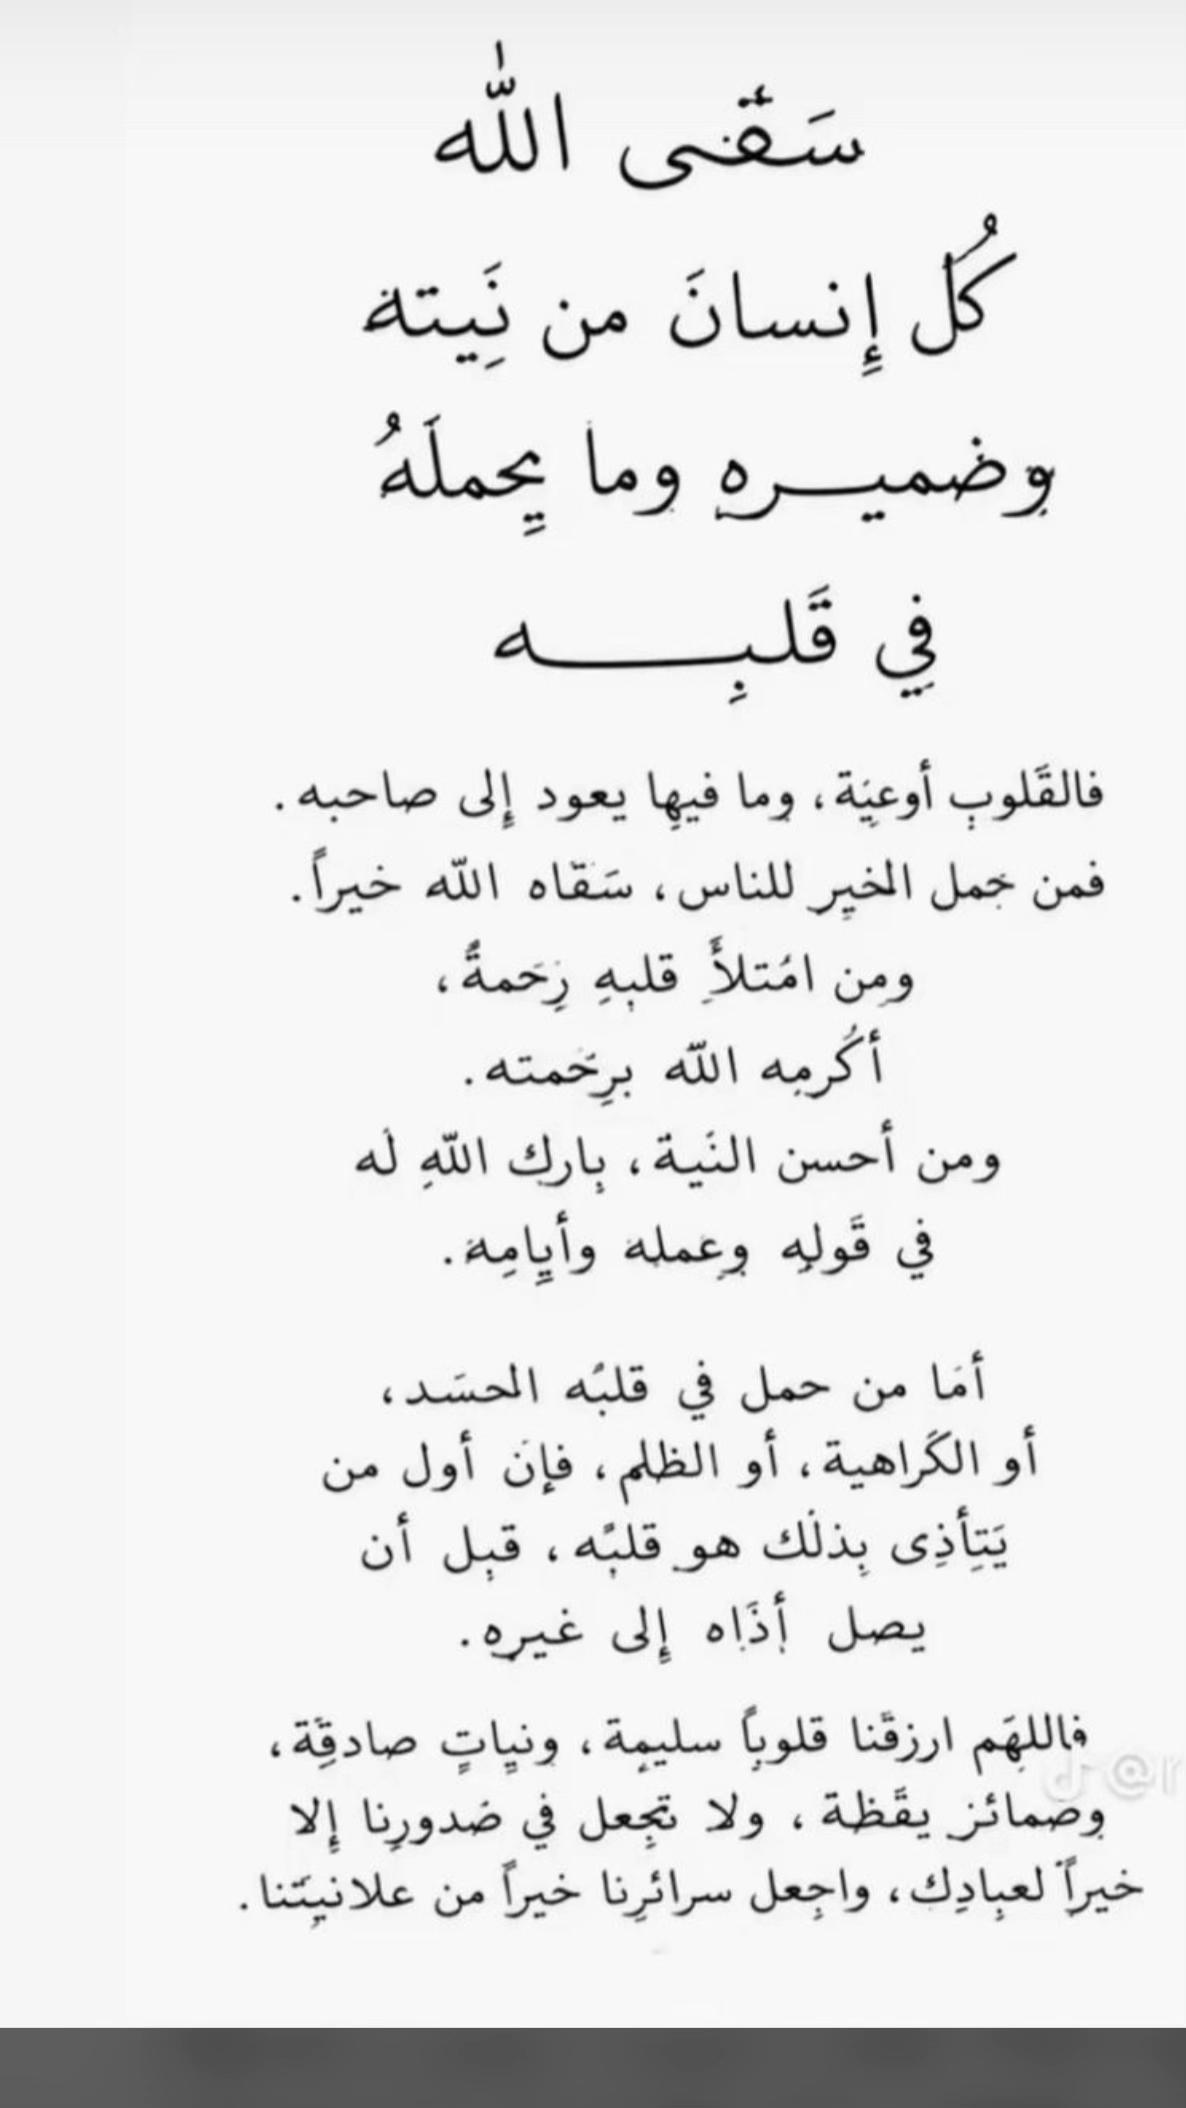 سَقى الله
كُل إِنسانَ من نَِيتة
وضميـــرهِ وما يِحملَهُ
في قَلبِـــــه
فالقَلوب أوعيَة، وما فيهِا يعود إِلى صاحبه.
فمن حَمل الخيرِ للناس، سَقاه الله خيراً.
ومن امُتلأَ قلبهِ رِحَمةً،
أكُرمه الله برِحَمته.
ومن أحسن النَية، بِارك اللهِ لَه
في قَوله وعملة وأيِامِة.
أمَا من حمل في قلبُه الحسَد،
أو الكَراهية، أو الظلم، فإنَ أول من
يَتِأذِى بِذلَك هو قلبُه، قبل أن
يصل أذَاه إِلى غيره.
فاللهَم ارزقَنا قلوباً سليمة، ونيِاتٍ صادقِة،
وضمائز يقَظة، ولا تجِعل في صَدورِنا إِلا
خيراً لعبِادِك، واجِعل سرائرِنا خيراً من علانيتَنا.
@r